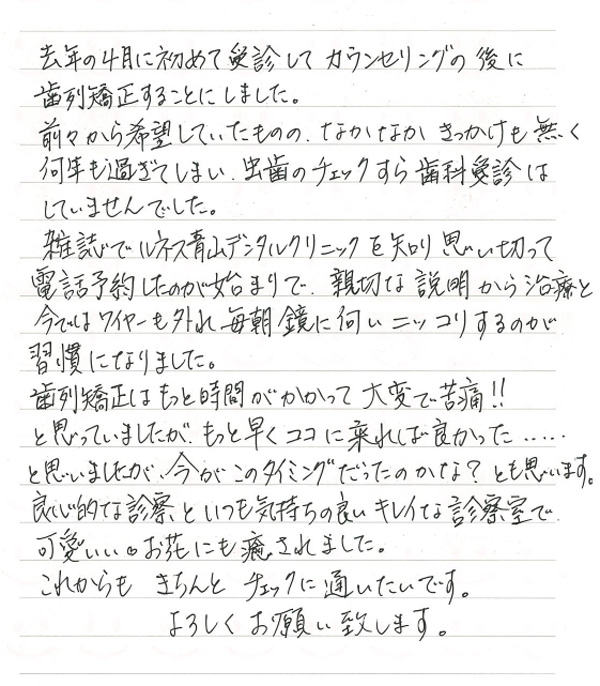 去年の4月に初めて受診して カウンセリングの後に
歯列矯正することにしました。
前々から希望していたものの、なかなか きっかけも 無く
何年も過ぎてしまい、虫歯のチェックすら歯科受診は
していませんでした。
雑誌でルネス青山デンタルクリニックを知り 思い切って
電話予約したのが始まりで、親切な 説明から治療と
今ではワイヤーも外れ 毎朝 鏡に向いニッコリするのが
習慣になりました。
歯列矯正はもっと時間がかかって 大変で苦痛!!
と思っていましたが、もっと早くココに来れば良かった‥‥‥
と思いましたが、今がこのタイミングだったのかな?とも思います。
良心的な診察といつも気持ちの良いキレイな診察室で
可愛いい。お花にも癒されました。
これからも きちんと チェックに通いたいです。
よろしく お願い致します。